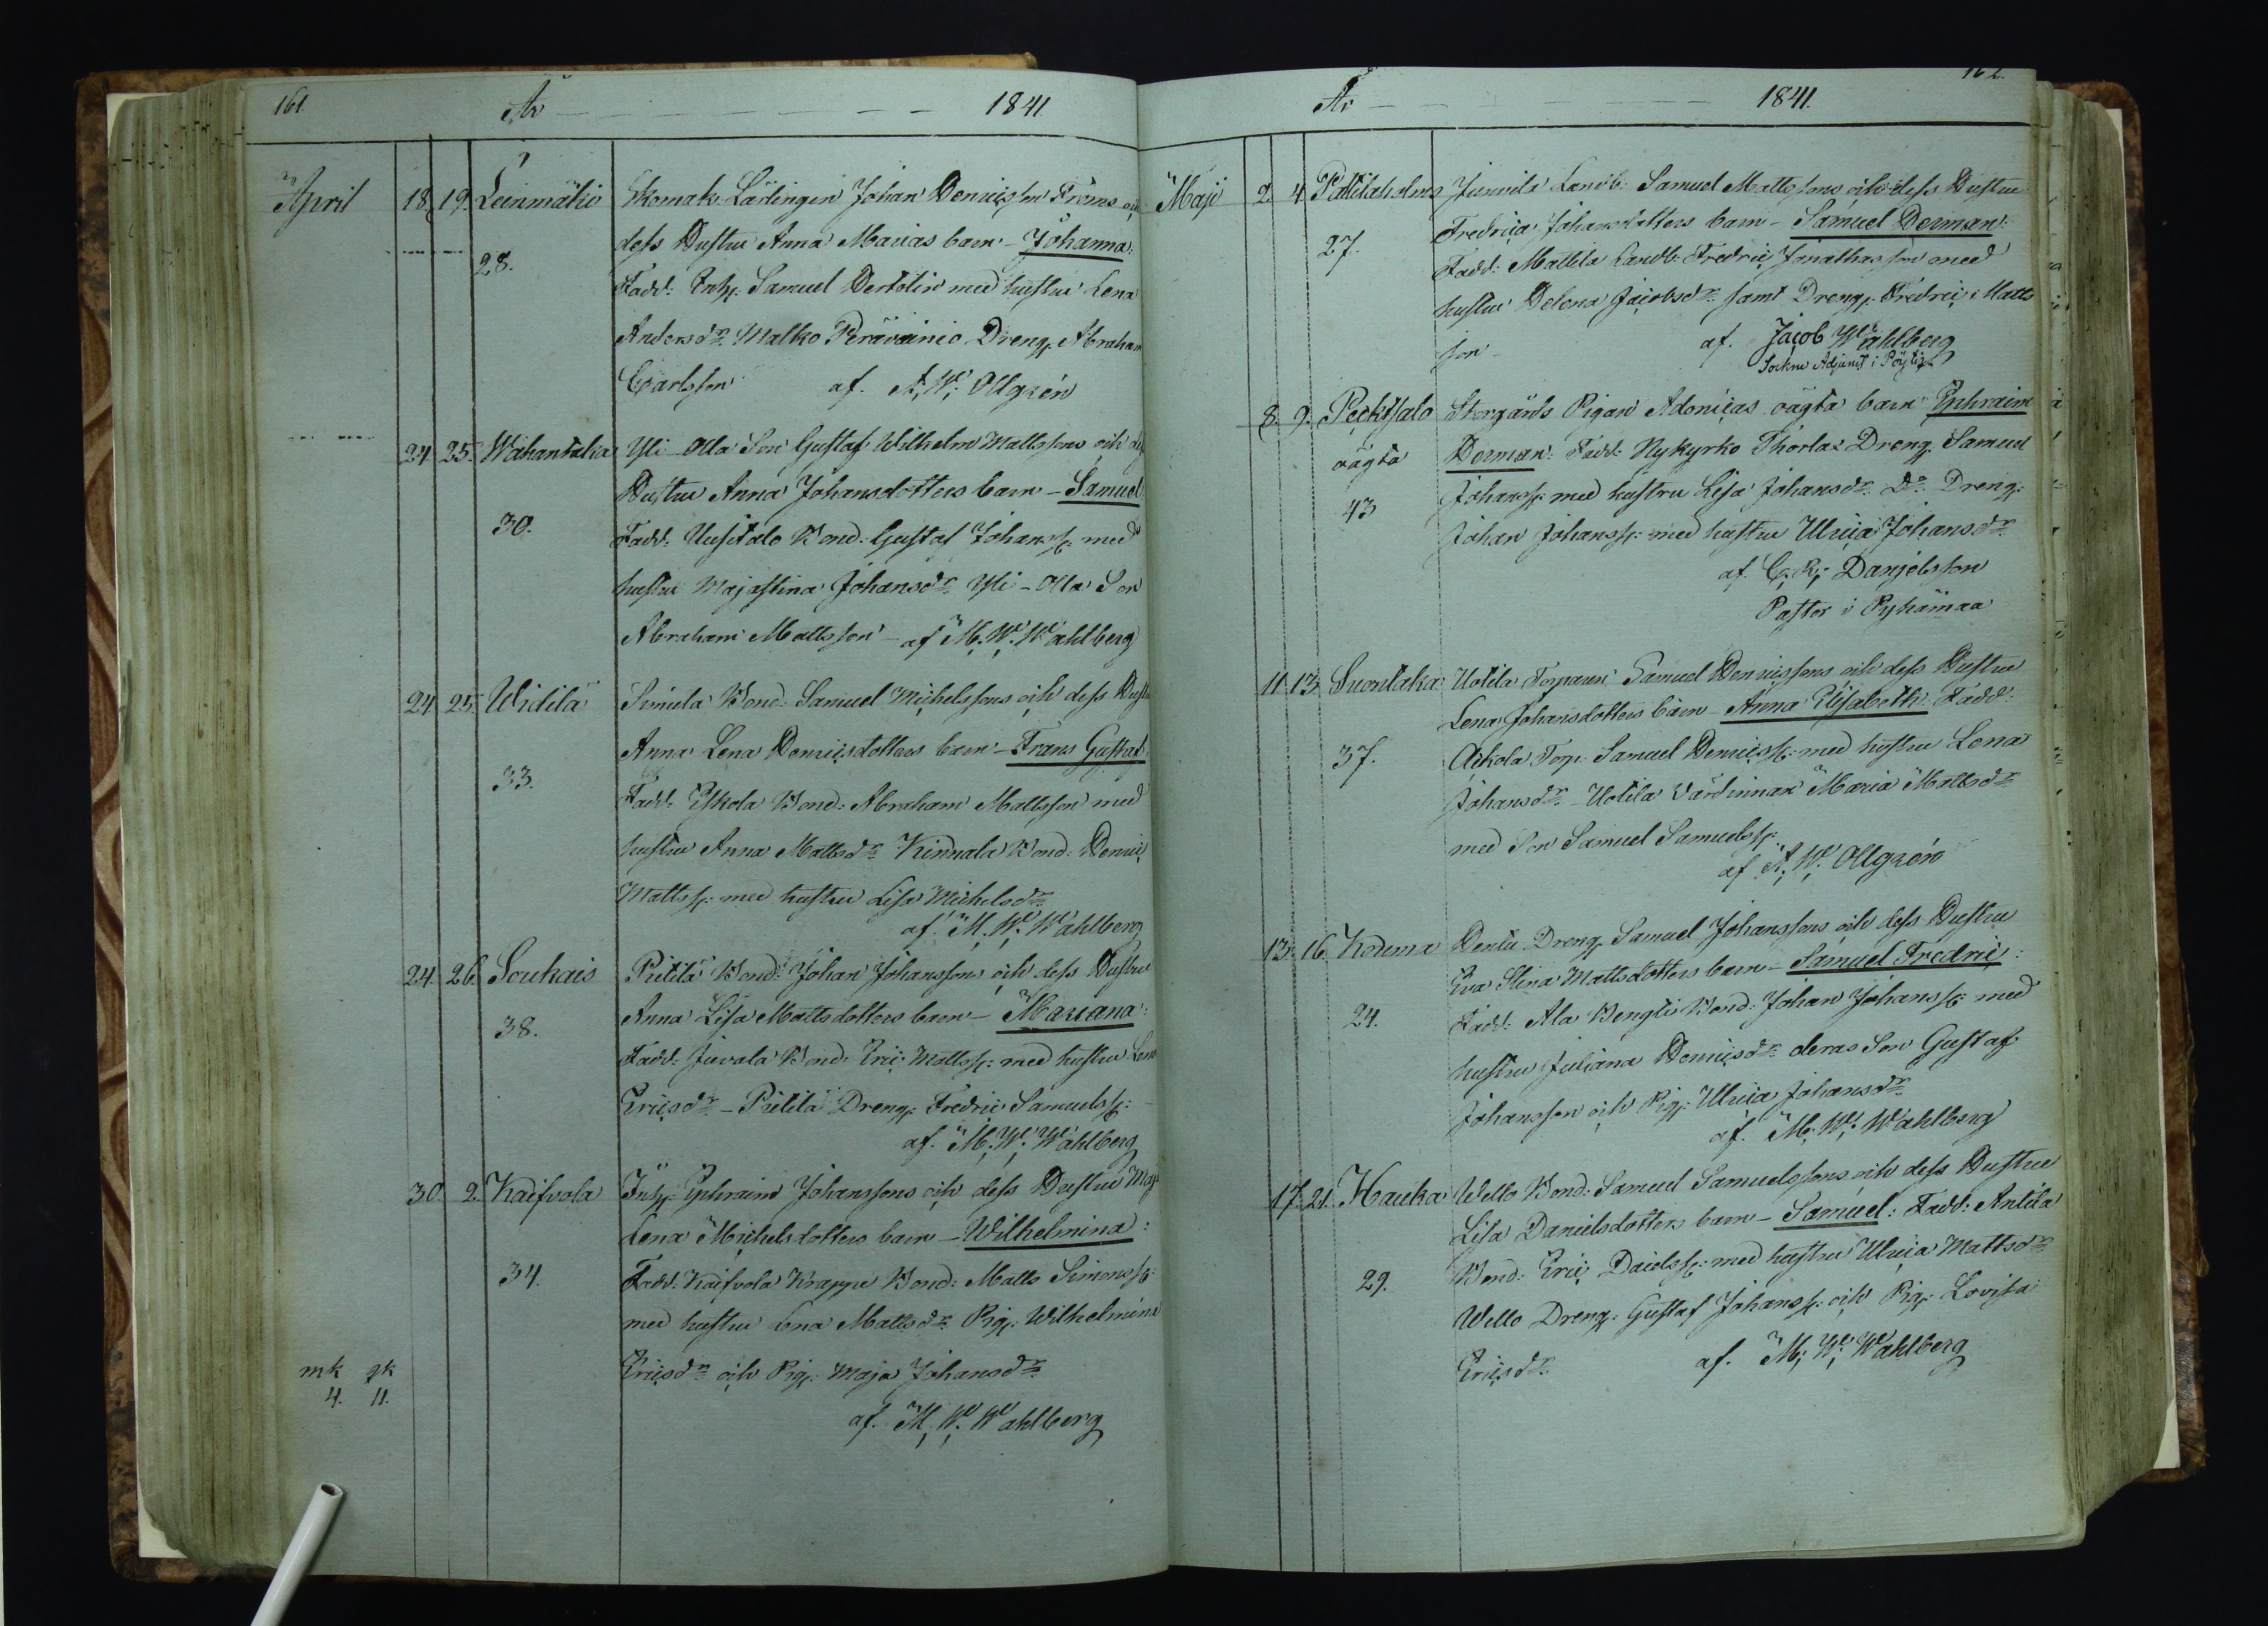 161. År — 1841.
April 18. 19. Leinmäki Skomak. Lärlingen Johan Henricsson Froms och
dess Hustru Anna Marias barn - Johanna:
28. Fadd: Inh: Samuel Hertelin med hustru Lena
Andersdr. Malko Peräväinio Dreng. Abraham
Carlsson af. A. W. Ollgrén
24. 25. Wähantalia Yli-Olla Son Gustaf Wilhelm Mattssons och dess
Hustru Anna Johansdotters barn - Samuel:
30. Fadd: Uusitalo Bond: Gustaf Johanss: med
hustru Majastina Johansdr. Yli-Olla Son
Abraham Mattsson - af M. W. Wahlberg
24. 25. Widilä Simula Bond: Samuel Michelssons och dess Hustru
Anna Lena Henricsdotters barn - Frans Gustaf:
33. Fadd: Eskola Bond: Abraham Mattsson med
hustru Anna Mattsdr. Kinnala Bond: Henric
Mattss: med hustru Lisa Michelsdr.
af. M. W. Wahlberg
24. 26. Soukais Pietilä Bond: Johan Johanssons och dess Hustru
38. Anna Lisa Mattsdotters barn - Mariana:
Fadd: Juvala Bond: Eric Mattss: med hustru Lena
Ericsdr. - Pietilä Dreng. Fredric Samuelss: -
af. M. W. Wahlberg
30. 2. Kaifvola Inh: Ephraim Johanssons och dess Hustru Maja
Lena Michelsdotters barn - Wilhelmina:
34. Fadd: Kaifvola Krappe Bond: Matts Simonss:
med hustru Lena Mattsdr. Pig: Wilhelmina
Ericsdr. och Pig: Maja Johansdr.
mk gk
4. 11.
af. M. W. Wahlberg
År — 1841. 162.
Maji 2. 4. Palilaholms Junnila Landb: Samuel Mattssons och dess Hustru
Fredrica Johansdotters barn - Samuel Herman:
27. Fadd: Mattila Landb: Fredric Jonathasson med
hustru Helena Jacobsdr. samt Dreng. Fredric Matts
son - af. Jacob Wahlberg
Sockne Adjunct i Pöytis
8. 9. Pecktsalo Storgärds Pigan Adonicas oägta barn Ephraim
oägta Herman: Fadd: Nykyrko Thorlax Dreng Samuel
43 Johanss: med hustru Lisa Johansdr. Do. Dreng:
Johan Johanss: med hustru Ulrica Johansdr.
af. C. R. Danjelsson
Pastor i Pyhämaa
11. 13. Suontaka Uotila Torparen Samuel Henricssons och dess Hustru
Lena Johansdotters barn - Anna Elisabeth: Fadd:
37. Aikola Torp: Samuel Henricss: med hustru Lena
Johansdr. - Uotila Värdinnan Maria Mattsdr.
med Son Samuel Samuelss:
af A. W. Ollgrén
13. 16. Kodema Hentu Dreng Samuel Johanssons och dess Hustru
Eva Stina Mattsdotters barn - Samuel Fredric:
24. Fadd: Ala Bengti Bond: Johan Johanss: med
hustru Juliana Henricsdr. deras Son Gustaf
Johansson och Pig: Ulrica Johansdr.
af. M. W. Wahlberg
17. 21. Hauka Wello Bond: Samuel Samuelssons och dess Hustru
Lisa Danielsdotters barn - Samuel: Fadd: Antila
29. Bond: Eric Davidss: med hustru Ulrica Mattsdr.
Wello Dreng: Gustaf Johanss: och Pig: Lovisa
Ericsdr. af. M. W. Wahlberg